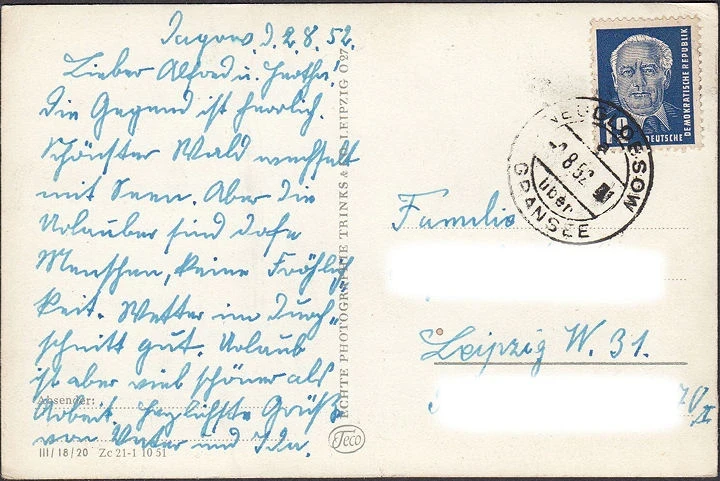 Dagow, d. 2.8.52.
Lieber Alfred u. Hertha!
Die Gegend ist herrlich.
Schönster Wald wechselt
mit Seen. Aber die
Urlauber sind dofe
Menschen, keine Fröhlich
keit. Wetter im Durch=
schnitt gut. Urlaub
ist aber viel schöner als
Arbeit. Herzlichste Grüße
von Vater und Ida.
Absender:
III/18/20 Zc 21-1 10 51
ECHTE PHOTOGRAPHIE TRINKS & LEIPZIG O 27
Teco
DEUTSCHE DEMOKRATISCHE REPUBLIK
8.52
über
GRANSEE
Familie
Leipzig W. 31.